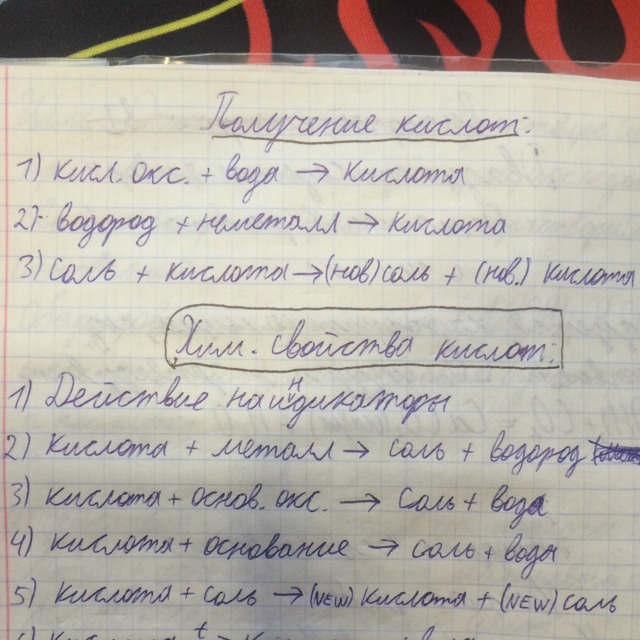 Получение кислот:
1) кисл. окс. + вода → кислота
2) водород + неметалл → кислота
3) соль + кислота → (нов) соль + (нов.) кислота
Хим. свойства кислот:
1) Действие на индикаторы
2) кислота + металл → соль + водород
3) кислота + основ. окс. → соль + вода
4) кислота + основание → соль + вода
5) кислота + соль → (NEW) кислота + (NEW) соль